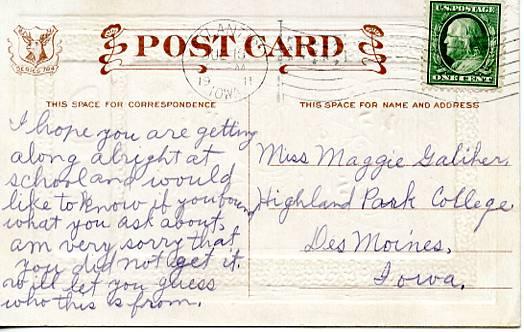 POST CARD
U.S. POSTAGE
ONE CENT
ATLANTIC
19
1911
IOWA
SERIES
THIS SPACE FOR CORRESPONDENCE
THIS SPACE FOR NAME AND ADDRESS
I hope you are getting
along alright at
school and would
like to know if you found
what you ask about,
am very sorry that
you did not get it.
will let you guess
who this is from.
Miss Maggie Galiher.
Highland Park College
Des Moines.
Iowa.